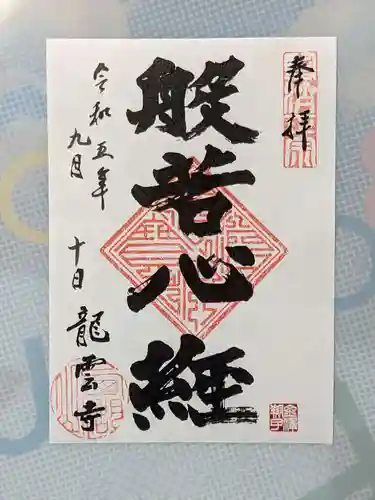 奉拝
般若心経
令和五年
九月
十日
龍雲寺